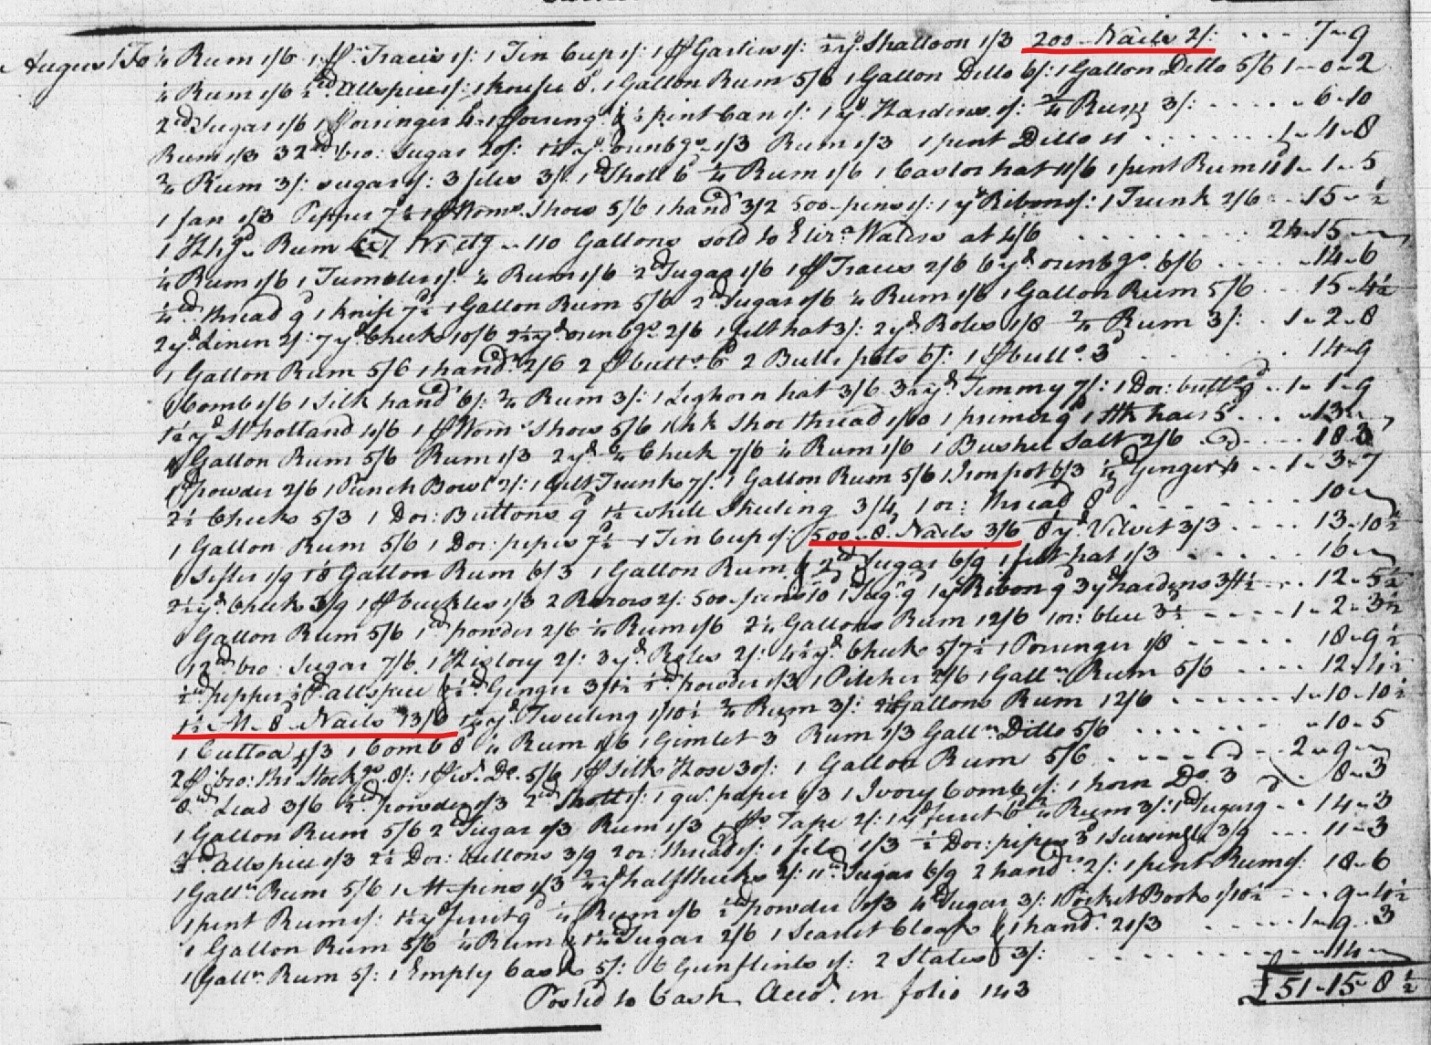 August To ¼ Rum 1/6 1 pr Traces 1/: 1 Tin Cup 1/: 1 pr Garters 1/: 2 yd Shalloon 1/3 200 Nails 2/: 7-9
¼ Rum 1/6 ½ lb Allspice 1/: 1 knife 8 1 Gallon Rum 5/6 1 Gallon Ditto 6/: 1 Gallon Ditto 5/6 1-0-2
2 lb Sugar 1/6 1 Porringer 1 pint Can 1/: 1 yd Hardens 1/: 2/4 Rum 3/: 6-10
Rum 1/3 32 lb bro: Sugar 20/: ozenbgs 1/3 Rum 1/3 1 pint Ditto 1-4-8
2/4 Rum 3/: Sugar 1/: 3 files 3/: 1 lb Shott 6 ¼ Rum 1/6 1 Castor hat 11/6 1 pint Rum 1-1-5
1 fan 1/3 Pepper 7½ 1 pr Woms Shoes 5/6 1 handf 3/2 500 pins 1/: 1 yd Ribon 1/: 1 Trunk 2/6 15-½
1 Hhgd Rum 110 Gallons sold to Waters at 4/6 24-15
¼ Rum 1/6 1 Tumbler 1/: ¼ Rum 1/6 2 lb Sugar 1/6 1 pr Traces 2/6 6 yd ozenbgs 6/6 14-6
¼ lb thread 9 1 knife 7½ 1 Gallon Rum 5/6 2 lb Sugar 1/6 ¼ Rum 1/6 1 Gallon Rum 5/6 15-4½
2 yd Linen 2/: 7 yd Checks 10/6 2½ yd ozenbgs 2/6 1 felt hat 3/: 2 yd Roles 1/8 2/4 Rum 3/: 1-2-8
1 Gallon Rum 5/6 1 handf 2/6 2 pr butts 6 2 Butts pots 6/: 1 pr butts 3 14-9
1 Comb 1/6 1 Silk handf 6/: 2/4 Rum 3/: 1 Leghorn hat 3/6 3½ yd Temmy 7/: 1 Doz: butts 9 1-1-9
yd St holland 4/6 1 pr Woms Shoes 5/6 1 hk Shoe thread 1 primer 9 1 Stk hair 5 13
1 Gallon Rum 5/6 Rum 1/3 2 yd ¾ Check 7/6 ¼ Rum 1/6 1 Bushel Salt 2/6 18-3
1 lb powder 2/6 1 Punch Bowl 2/: 1 Gilt Trunk 7/: 1 Gallon Rum 5/6 1 Iron pot 6/3 ¼ lb Ginger 1-3-7
2½ Checks 5/3 1 Doz: Buttons 9 1½ white Sheeting 3/4 1 oz: thread 8 10
1 Gallon Rum 5/6 1 Doz: pipes 7½ 1 Tin Cup 1/: 500..8d Nails 3/6 yd Velvet 3/3 13-10½
1 Sifter 1/9 Gallon Rum 6/3 1 Gallon Rum 2 lb Sugar 6/9 1 felt hat 1/3 16
2½ yd Check 3/9 1 pr buckles 1/3 2 Razors 2/: 500 pins 10 1 Jug 9 1 yd Ribon 9 3 yd hardens 3/4½ 12-5½
1 Gallon Rum 5/6 1 lb powder 2/6 ¼ Rum 1/6 2¼ Gallons Rum 12/6 1 oz: blue 3½ 1-2-3½
12 lb bro: Sugar 7/6 1 History 2/: 3 yd Roles 2/: 4½ yd Check 5/7½ 1 Porringer 1/8 18-9½
½ lb pepper ½ lb allspice ½ lb Ginger 3/1½ ½ lb powder 1/3 1 Pitcher 2/6 1 Galln Rum 5/6 12-4½
1½ M..8d Nails 13/6 yd Tweeling 1/10½ 2/4 Rum 3/: 2¼ Gallons Rum 12/6 1-10-10½
1 Cuttoa 1/3 1 Comb 8 ¼ Rum 1/6 1 Gimlet 3 Rum 1/3 Galln Ditto 5/6 10-5
2 pr bro: thr Stockgs 8/: 1 pr Do. 5/6 1 pr Silk Hose 30/: 1 Gallon Rum 5/6 2-9
8 lb Lead 3/6 ½ lb powder 1/3 2 lb Shott 1/: 1 qr. paper 1/3 1 Ivory Comb 1/: 1 horn Do. 3 8-3
1 Gallon Rum 5/6 2 lb Sugar 1/3 Rum 1/3 1 ps Tape 2/: 1 yd ferret 6 2/4 Rum 3/: 1 lb Sugar 9 14-3
lb Allspice 1/3 2½ Doz: buttons 3/9 2 oz: thread 1/: 1 1/3 ½ Doz: pipes 3 1 Sursingle 3/9 11-3
1 Galln Rum 5/6 1 M pins 1/3 yd halfthicks 2/: 11 lb Sugar 6/9 2 handfs 2/: 1 pint Rum 1/: 18-6
1 pint Rum 1/: 1½ yd ferret 9 ¼ Rum 1/6 ½ lb powder 1/3 4 lb Sugar 3/: 1 Pocket Book 1/10½ 9-4½
1 Gallon Rum 5/6 ¼ Rum Sugar 2/6 1 Scarlet Cloak 1 hand. 21/3 1-9-3
1 Galln Rum 5/: 1 Empty Cask 5/: 6 Gunflints 1/: 2 States 3/: 14
Posted to Cash Accot. in folio 143 £51-15-8½